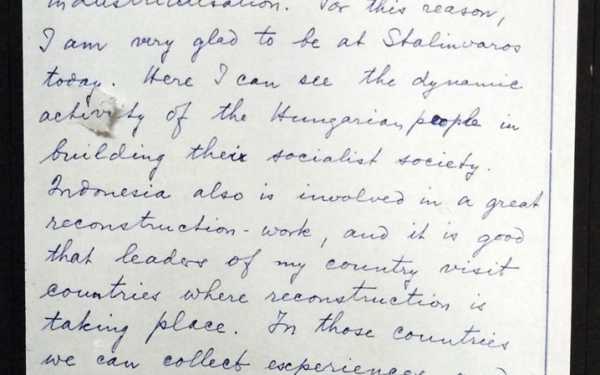 industrialisation. For this reason,
I am very glad to be at Stalinvaros
today. Here I can see the dynamic
activity of the Hungarian people in
building their socialist society.
Indonesia also is involved in a great
reconstruction-work, and it is good
that leaders of my country visit
countries where reconstruction is
taking place. In those countries
we can collect experiences and